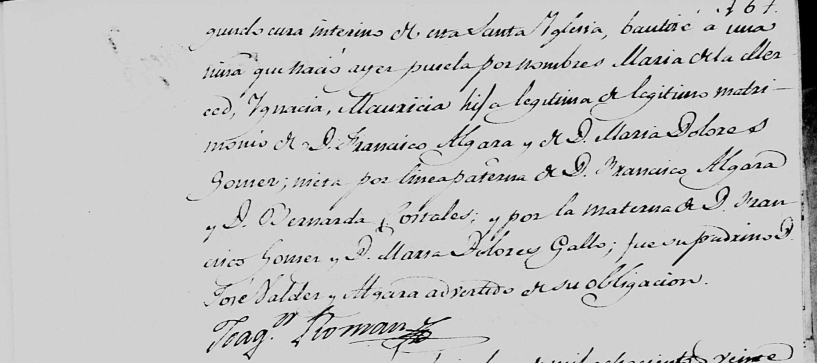 167.
gundo cura interino de esta Santa Yglesia, bauticé á una
niña que nació ayer pusela por nombres Maria de la Mer-
ced, Ygnacia, Mauricia hija legitima de legitimo matri-
monio de D. Francisco Algara y de D. Maria Dolores
Gomer; nieta por linea paterna de D. Francisco Algara
y D. Bernarda Corrales; y por la materna de D. Fran
cisco Gomer y D. Maria Dolores Gallo; fue su padrino D.
José Valder y Algara advertido de su obligacion.
Roman
mil ochocientos veinte